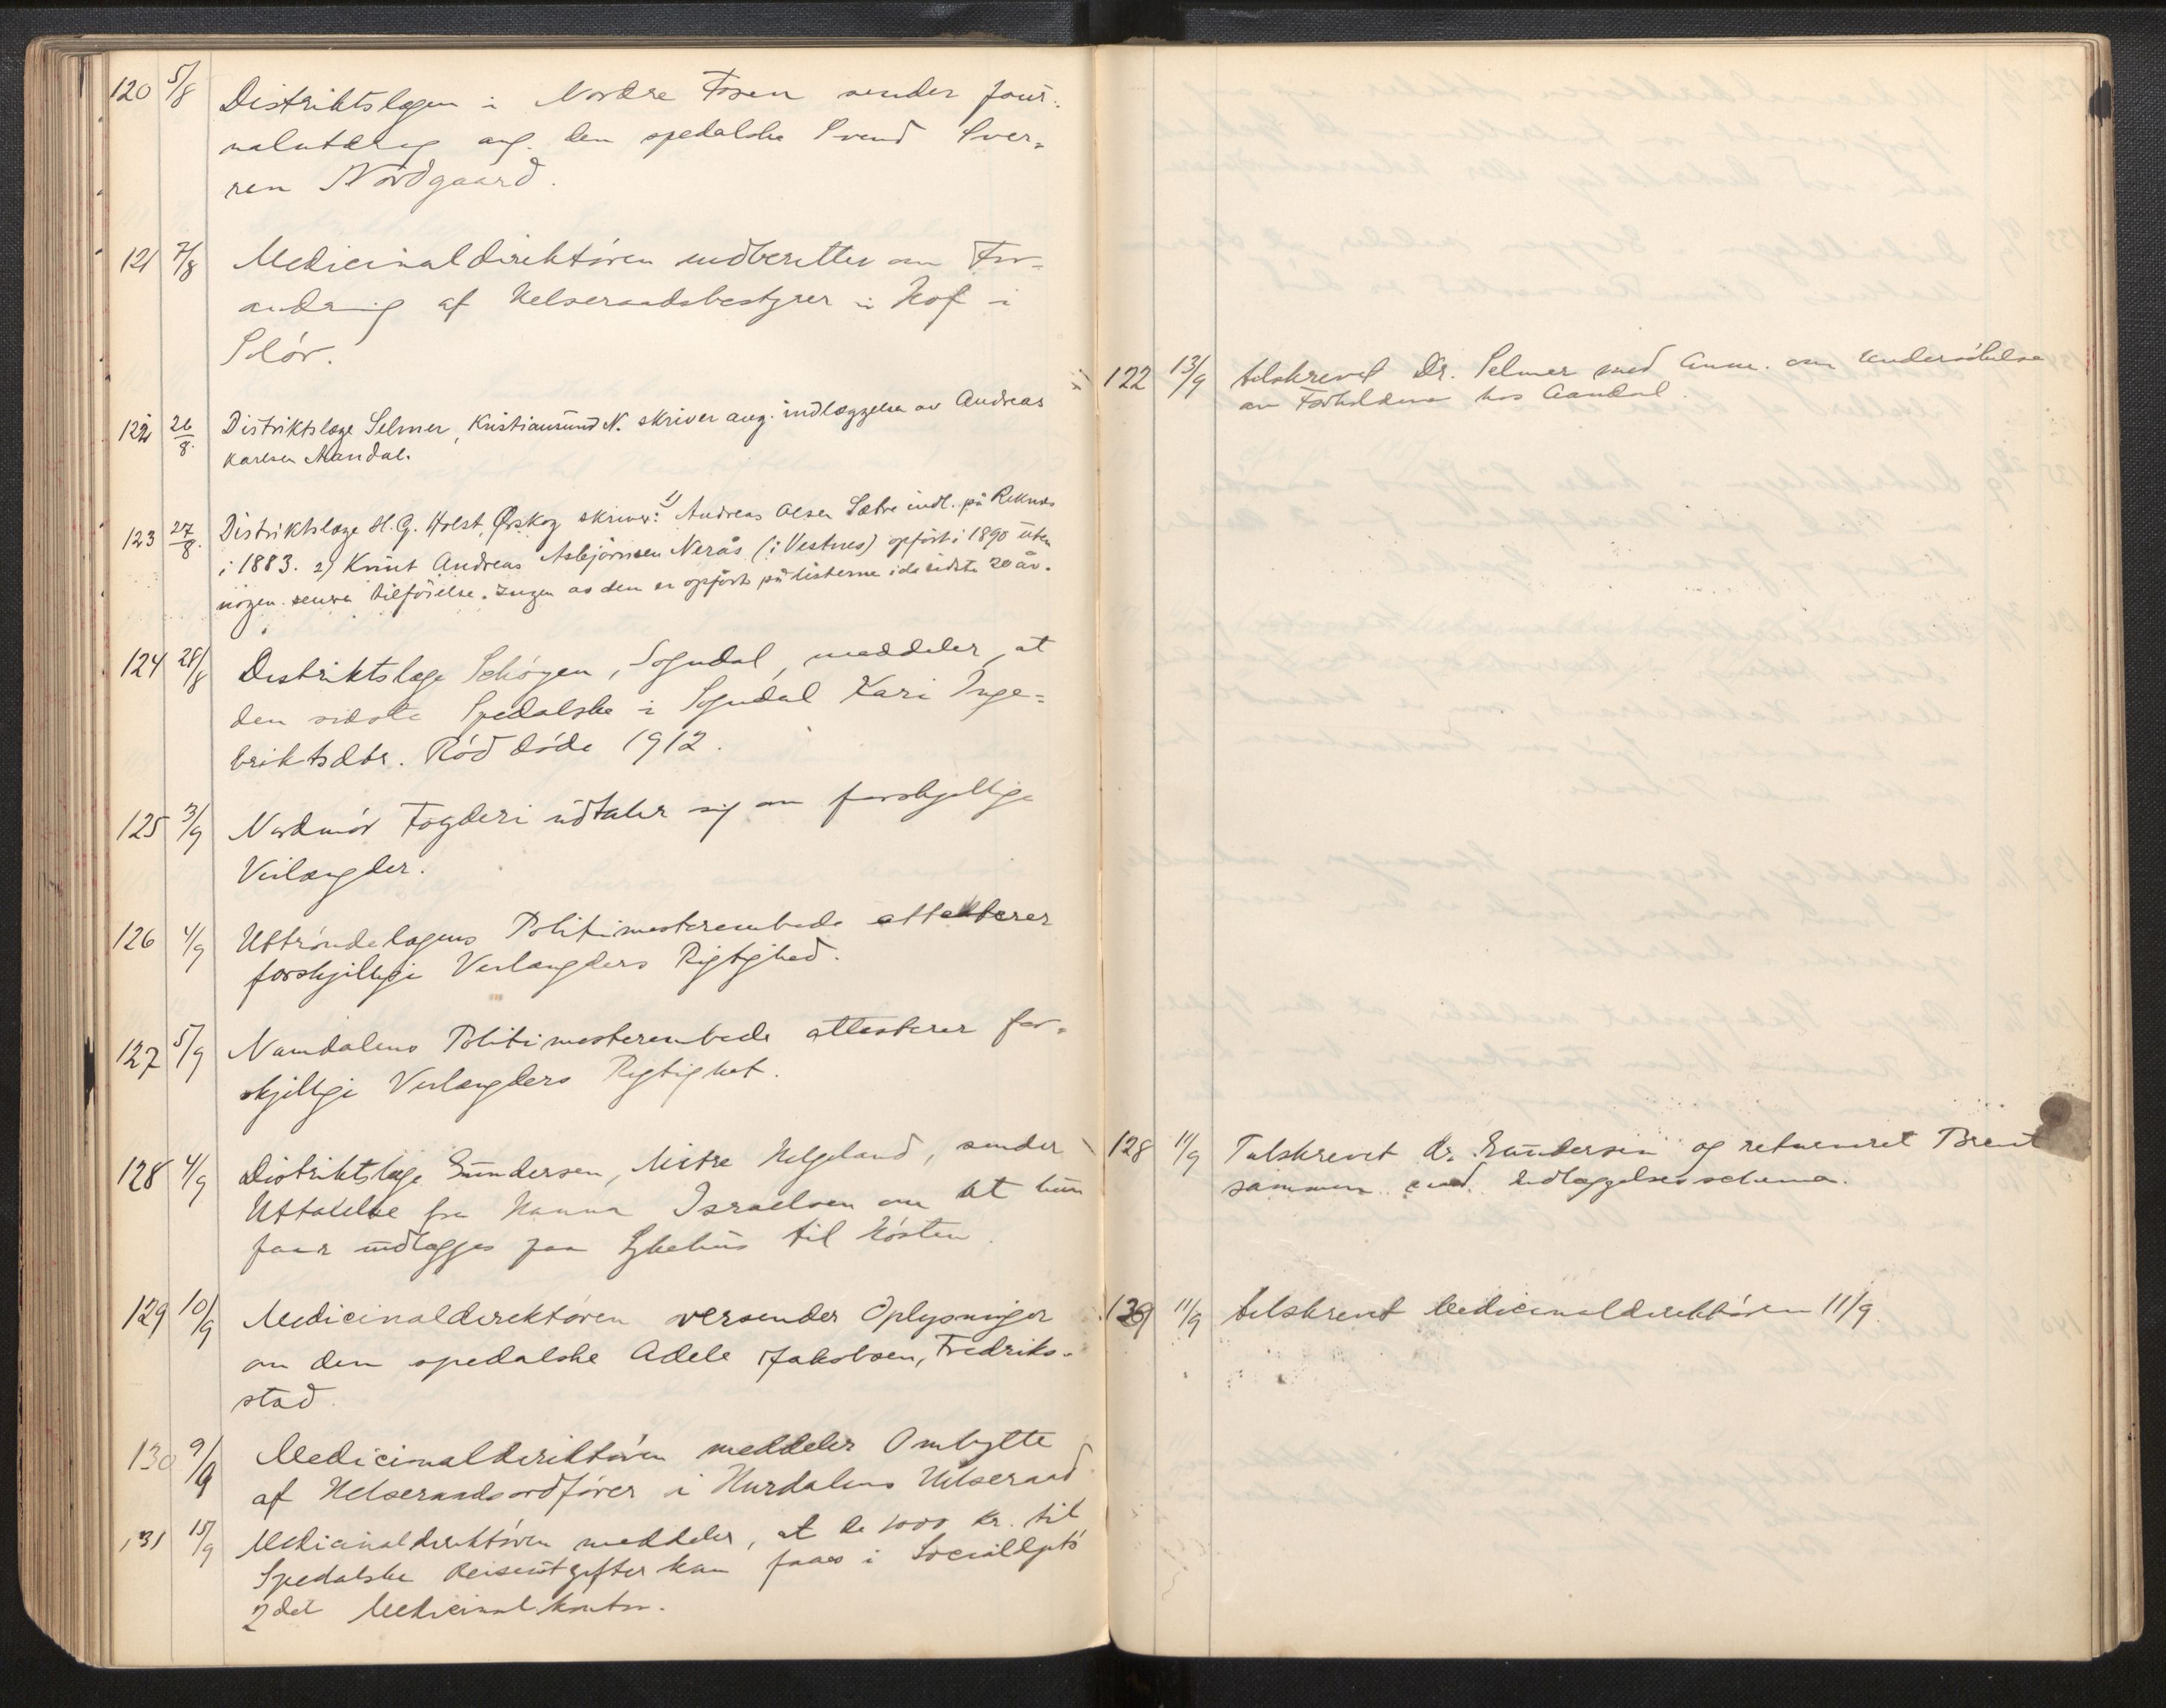 120 5/8 Distriktslægen i Nordre Fosen sender jour-
naludtog ang. den spedalske Svend Sver-
ren Nordgaard.
121 7/8 Medicinaldirektøren indberetter om For-
andring af Helseraadsbestyrer i Hof i
Solør.
122 26/8. Distriktslæge Selmer, Kristiansund N. skriver ang. indlæggelse av Andreas
Karlsen Aandal.
123 27/8. Distriktslæge H.G. Holst, Ørskog skriver: 1) Andreas Olsen Sætre indl. på Reknes
i 1883. 2) Knut Andreas Asbjørnsen Nerås (i Vestnes) opført i 1890 uten
nogen senere tilføielse. Ingen av dem er opført på listerne i de sidste 20 år.
124 28/8 Distriktslæge Schøyen, Sogndal, meddeler, at
den sidste Spedalske i Sogndal Kari Inge-
briktsdtr. Rød døde 1912.
125 3/9 Nordmør Fogderi udtaler sig om forskjellige
Verlængder.
126 4/9 Uttrøndelagens Politimesterembede attesterer
forskjellige Verlængders Rigtighed.
127 5/9 Namdalens Politimesterembede attesterer for-
skjellige Verlængders Rigtighet.
128 4/9 Distriktslæge Gundersen, Nitre Helgeland, sender
Uttalelse fra Hanna Israelsen om at hun
faar indlægges paa Sykehus til Høsten.
129 10/9 Medicinaldirektøren versender Oplysninger
om den spedalske Adele Jakobsen, Fredriks-
stad.
130 9/9 Medicinaldirektøren meddeler Ombytte
af Helseraadsordfører i Hurdalens Helseraad
131 15/9 Medicinaldirektøren meddeler, at de 1000 kr. til
Spedalske Reiseutgifter kan faaes i Socialdpts
2det Medicinalkontor.
122 13/9 tilskrevet Dr. Selmer med Anm. om Undersøkelse
av Forholdene hos Aandal.
128 11/9 Tilskrevet dr. Gundersen og returneret Brevet
sammen med Indlæggelsesschema.
129 11/9 tilskrevet Medicinaldirektøren 11/9.